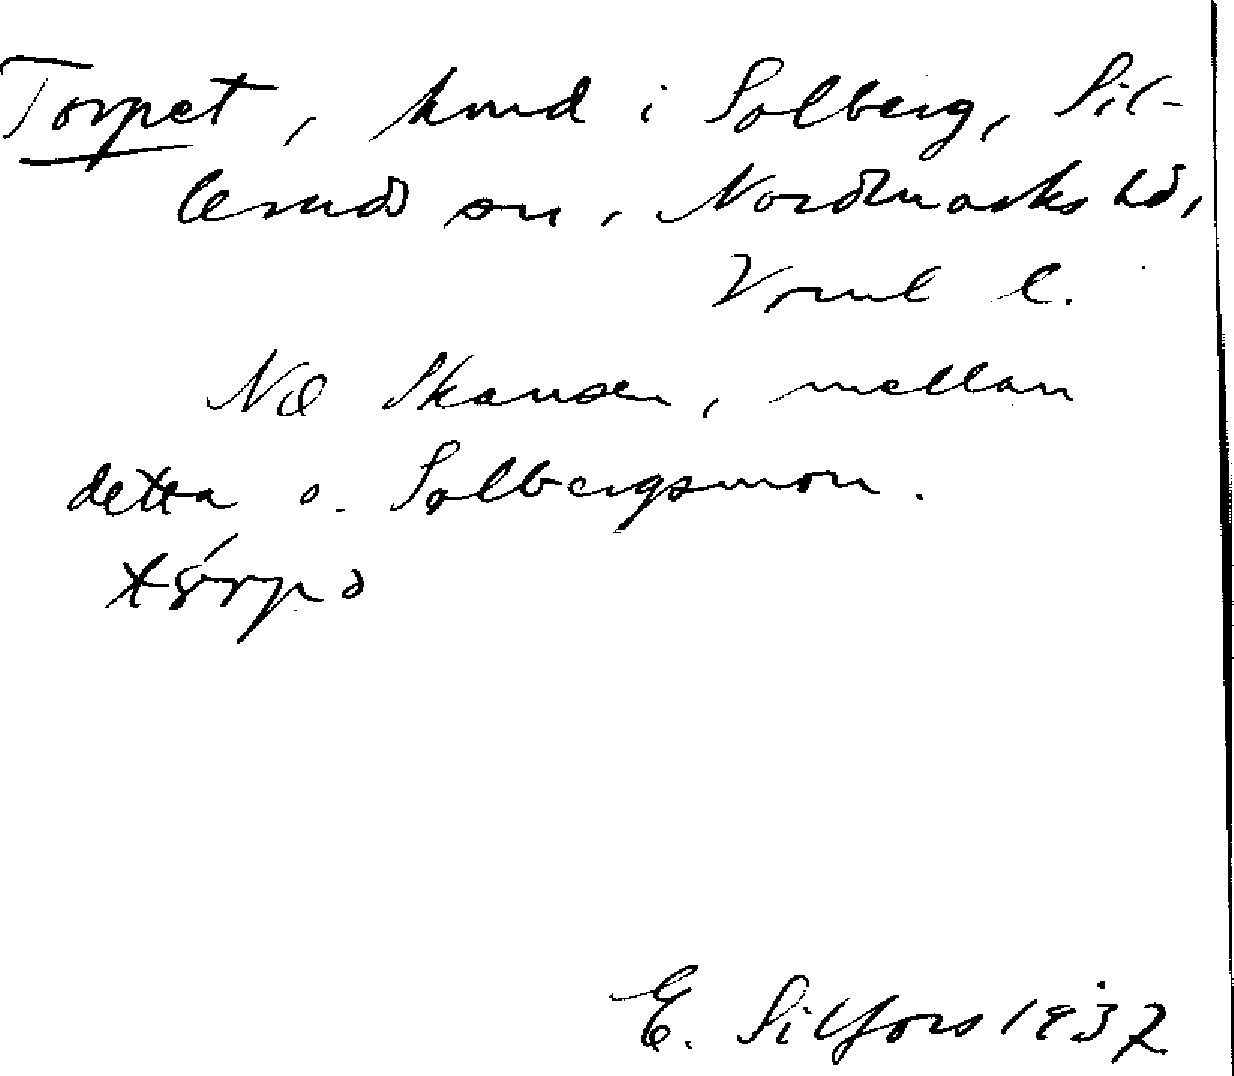 Torpet, hmd i Solberg, Sil-
leruds sn, Nordmarks hd,
Vrml l.
NO Skansen, mellan
detta o. Solbergsmon.
E. Silfors 1937